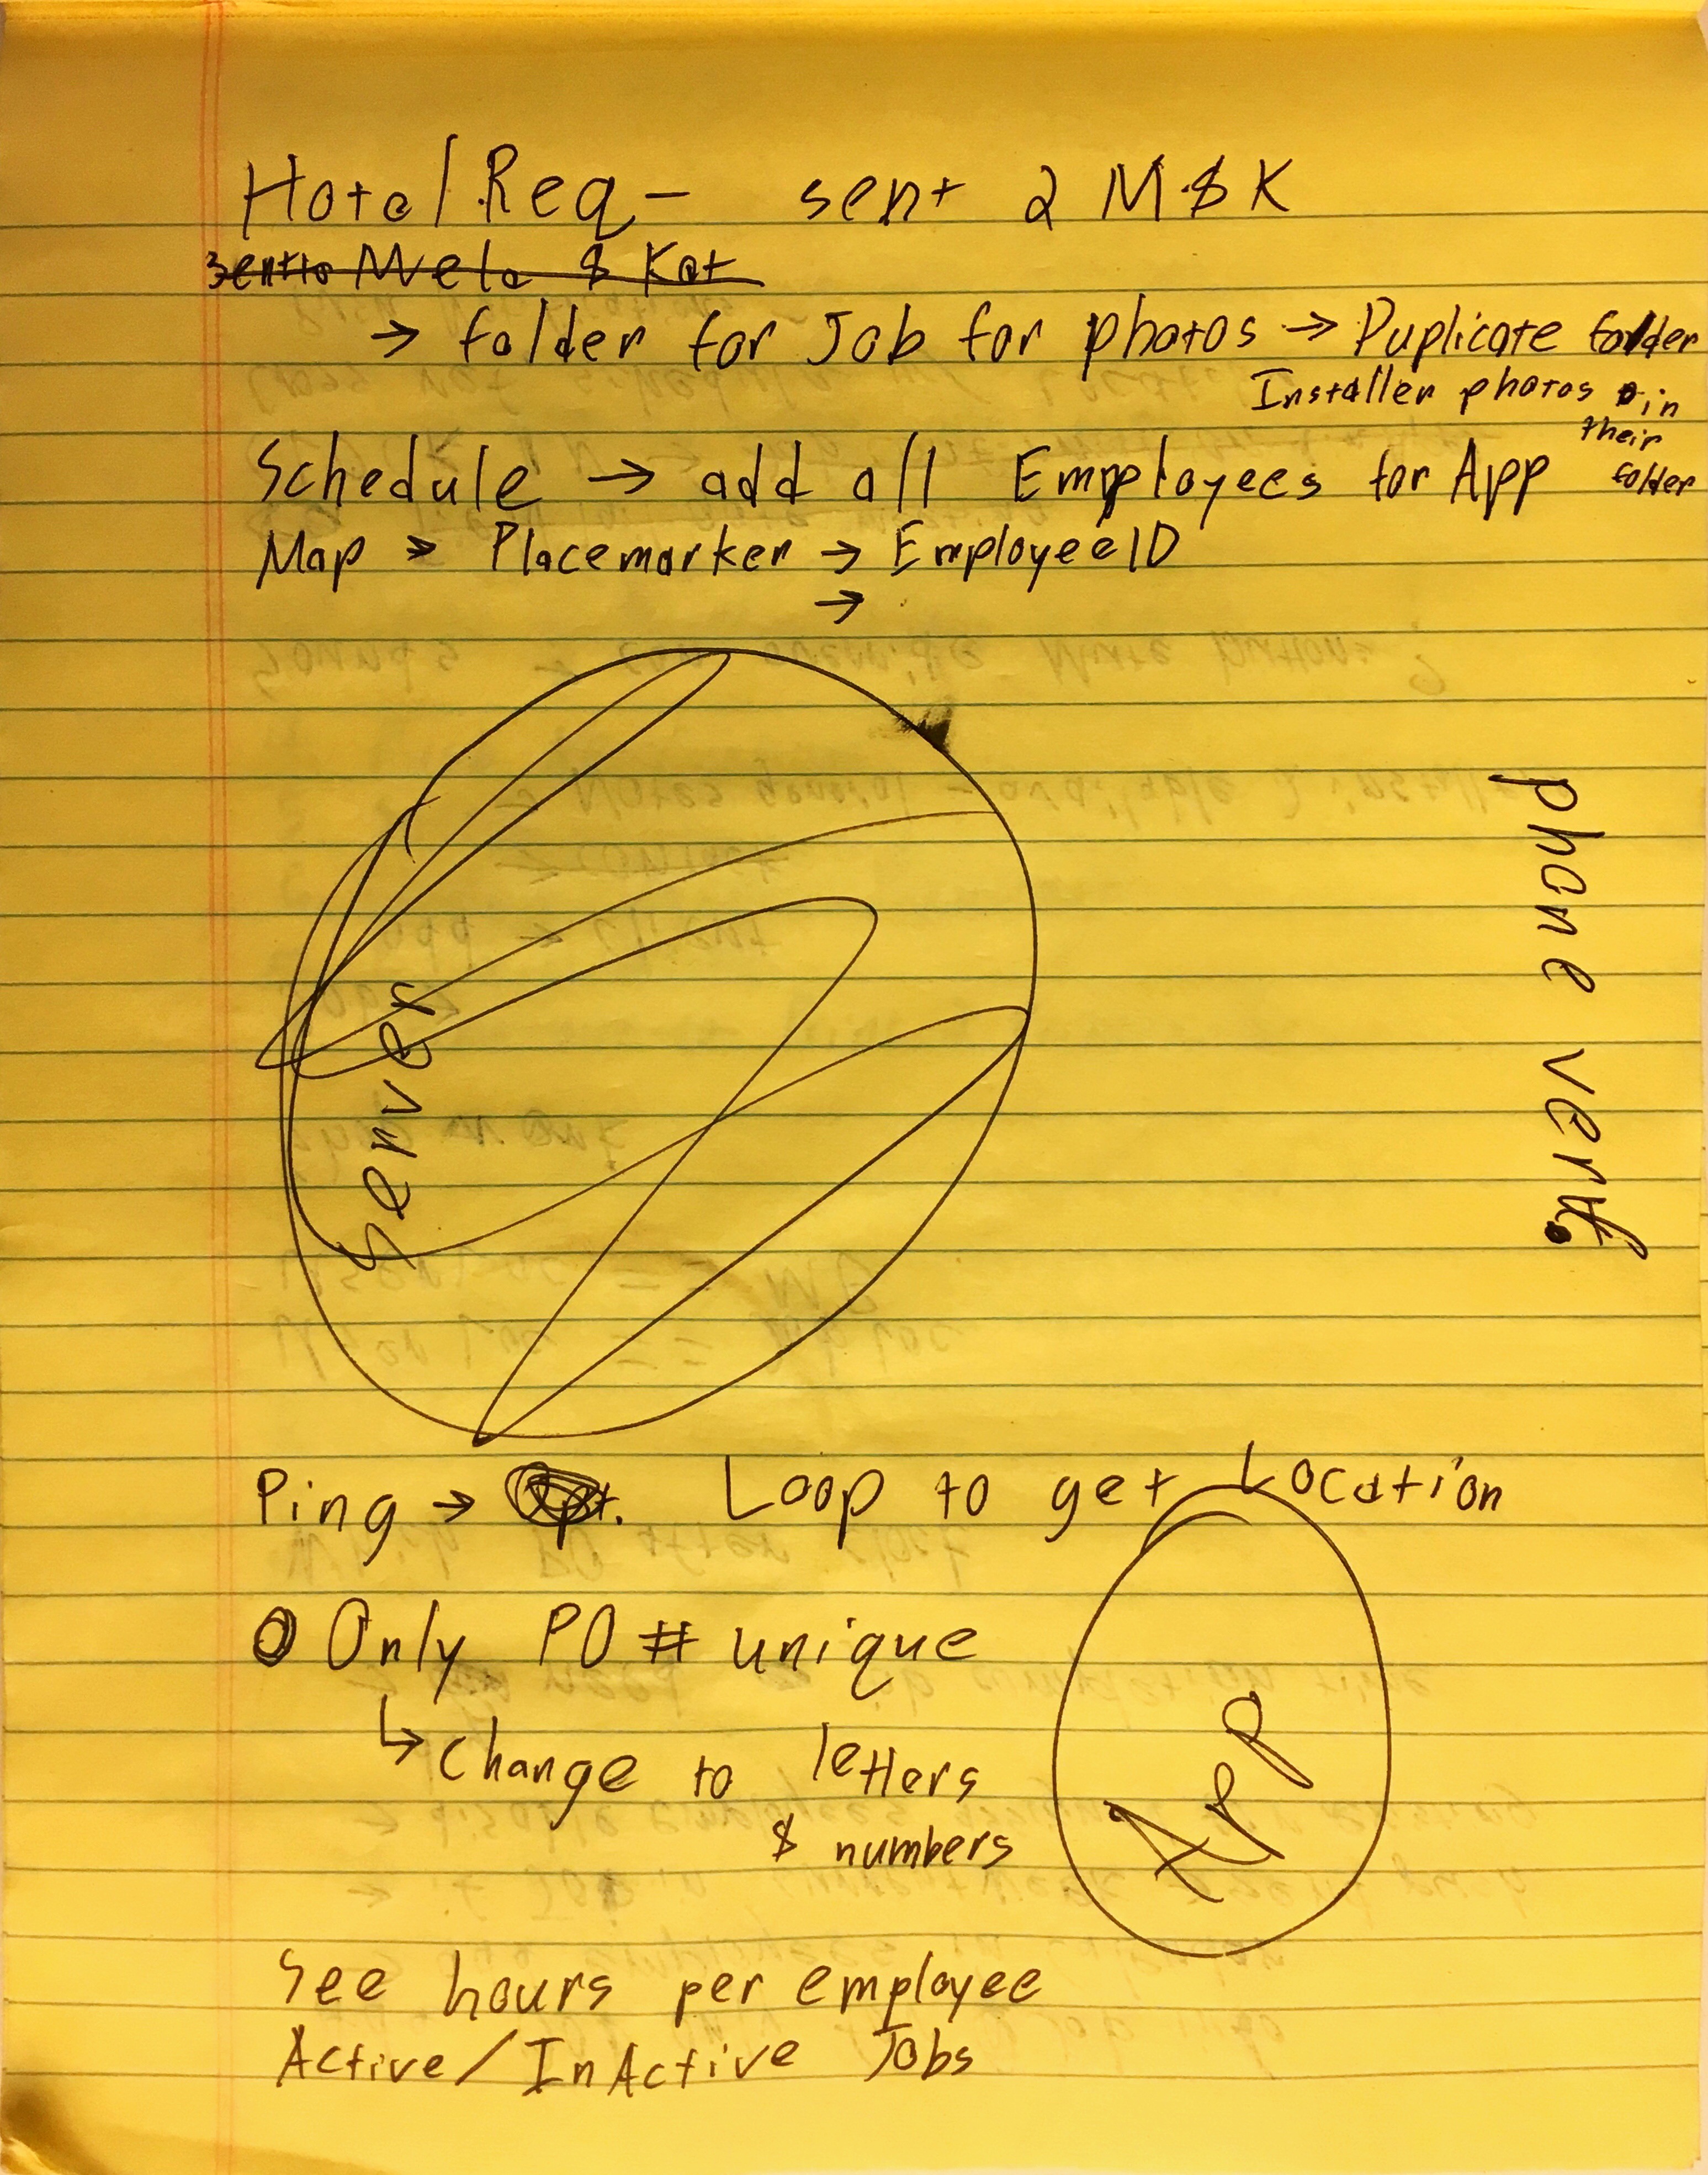 Hotel Req - sent 2 M & K
sent to Mela & Kat
→ folder for Job for photos → Duplicate folder
Installer photos in
their
folder
Schedule → add all Employees for App
Map > Placemarker → EmployeeID
→
phone vert.
Server
Ping → Loop to get Location
Only PO # unique
↳ Change to letters
& numbers
App
See hours per employee
Active/InActive Jobs